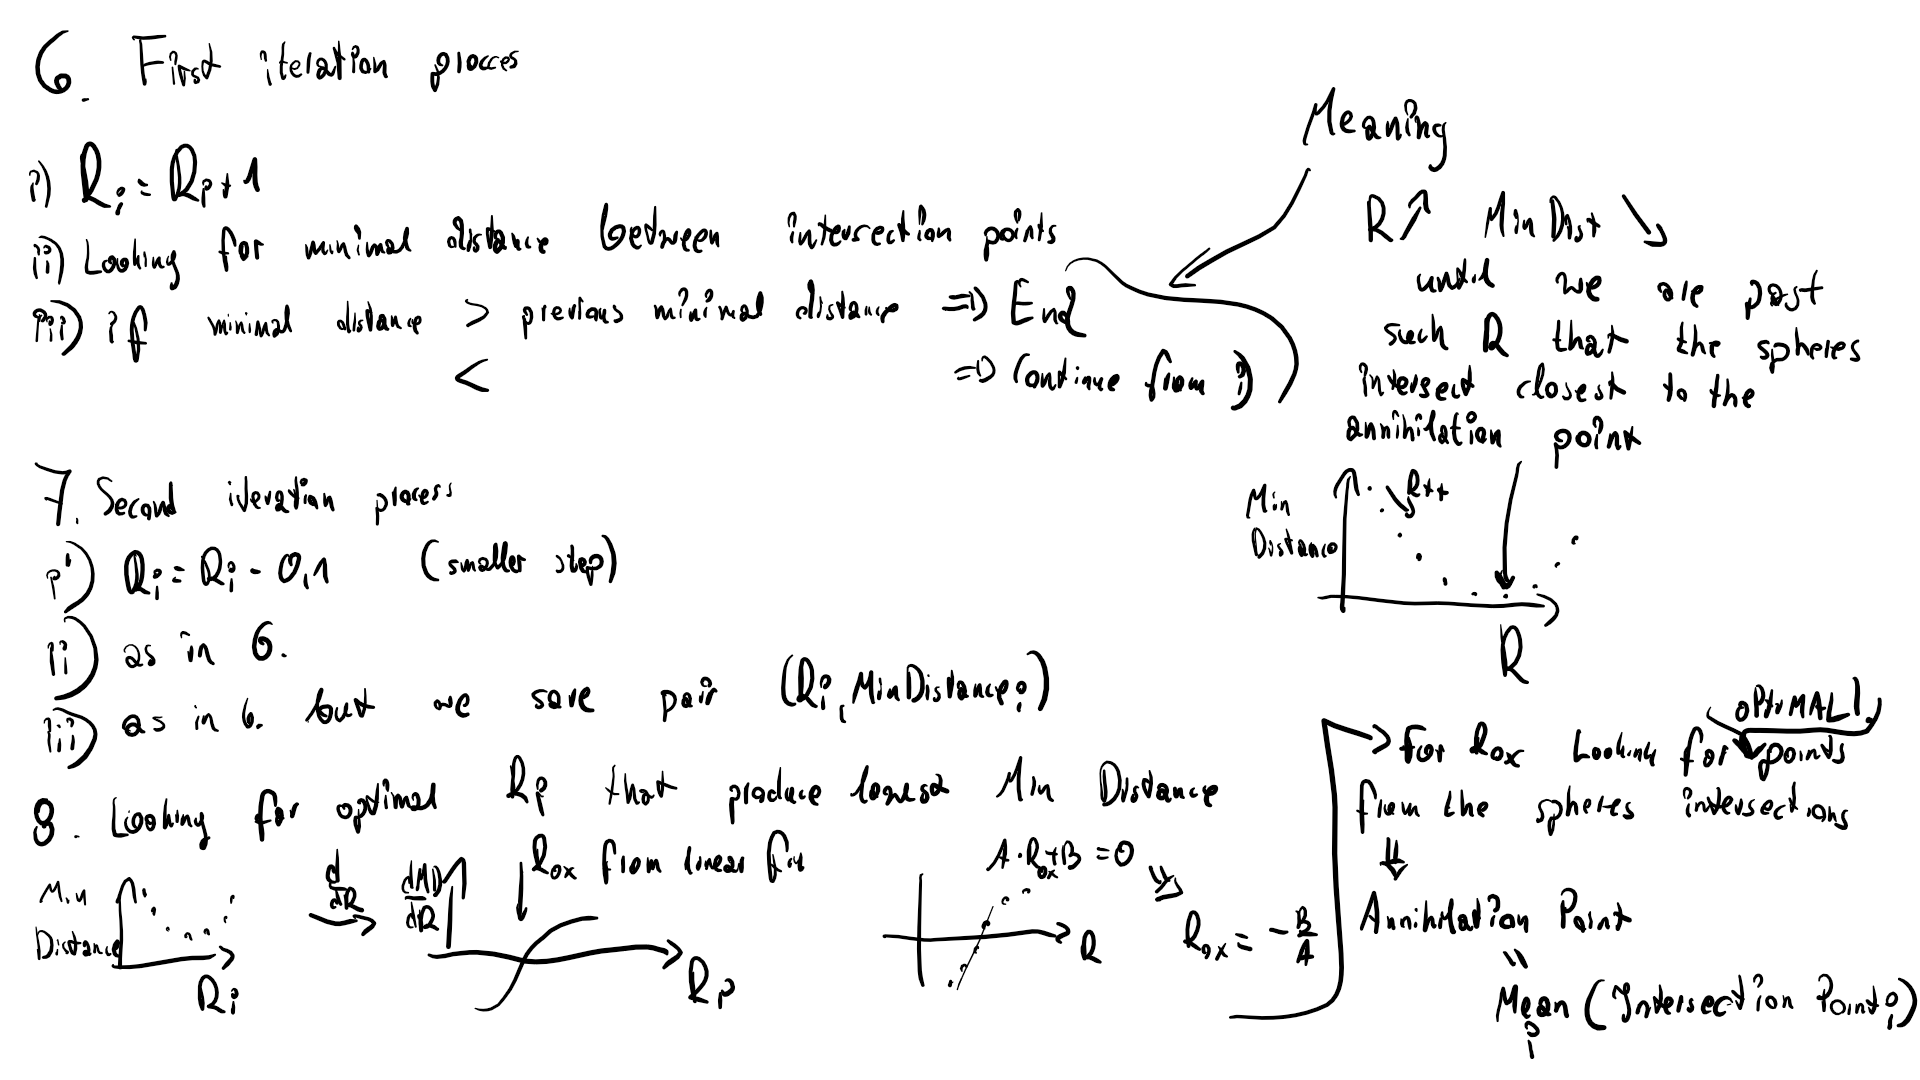 6. First iteration procces
i) Ri = Ri + 1
ii) Looking for minimal distance between intersection points
iii) if minimal distance > previous minimal distance => End
< => Continue from i)
Meaning
R ↗ Min Dist ↘
until we are past
such R that the spheres
intersect closest to the
annihilation point
Min
Distance
R++
R
7. Second iteration process
i') Ri = Ri - 0,1 (smaller step)
ii) as in 6.
iii) as in 6. but we save pair (Ri, MinDistancei)
8. Looking for optimal Ri that produce lowest Min Distance
Min
Distance
Ri
d/dR
dMD/dR
Rox from linear fit
Ri
A·Rox+B = 0
R
Rox = -B/A
OPTIMAL!
For Rox Looking for points
from the spheres intersections
⇓
Annihilation Point
=
Mean (Intersection Pointi)
i